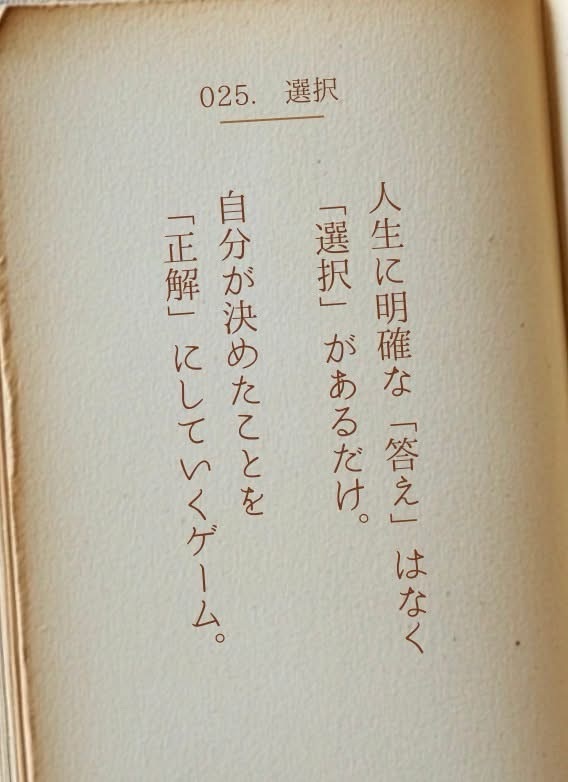 025. 選択
人生に明確な「答え」はなく
「選択」があるだけ。
自分が決めたことを
「正解」にしていくゲーム。